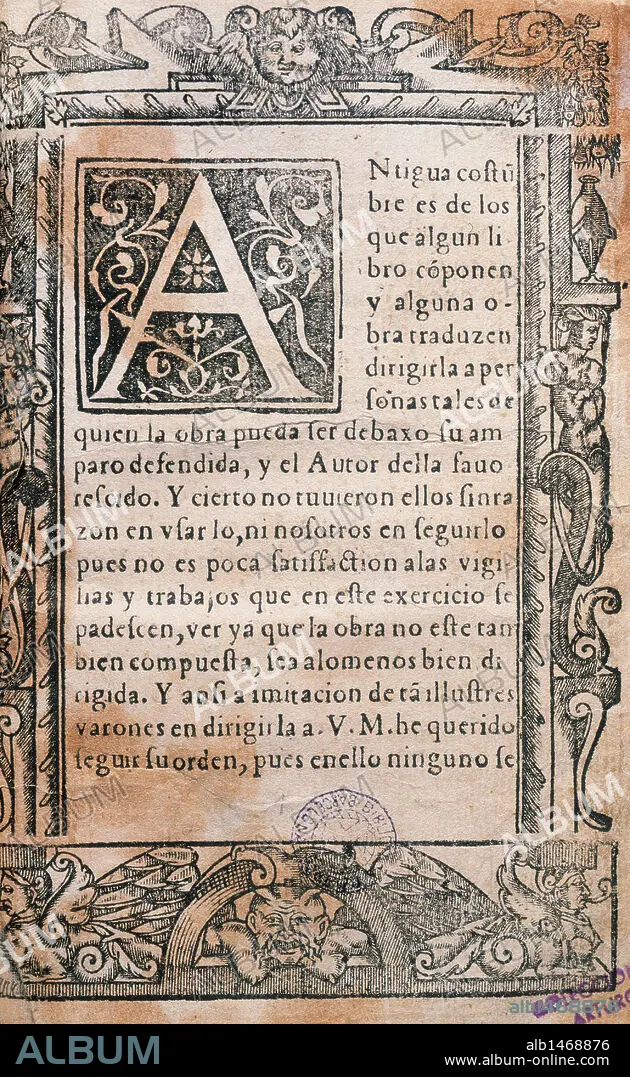 ANtigua costũ
bre es de los
que algun li
bro cõponen
y alguna o-
bra traduzen
dirigirla a per
sonas tales de
quien la obra pueda ser debaxo su am
paro defendida, y el Autor della fauo
rescido. Y cierto no tuuieron ellos sinra
zon en vsar lo, ni nosotros en seguirlo
pues no es poca satisfaction alas vigi
lias y trabajos que en este exercicio se
padescen, ver ya que la obra no este tan
bien compuesta, sea alomenos bien di
rigida. Y ansi a imitacion de tã illustres
varones en dirigirla a. V. M. he querido
seguir su orden, pues enello ninguno se
ALBUM
alb1468876
www.album-online.com